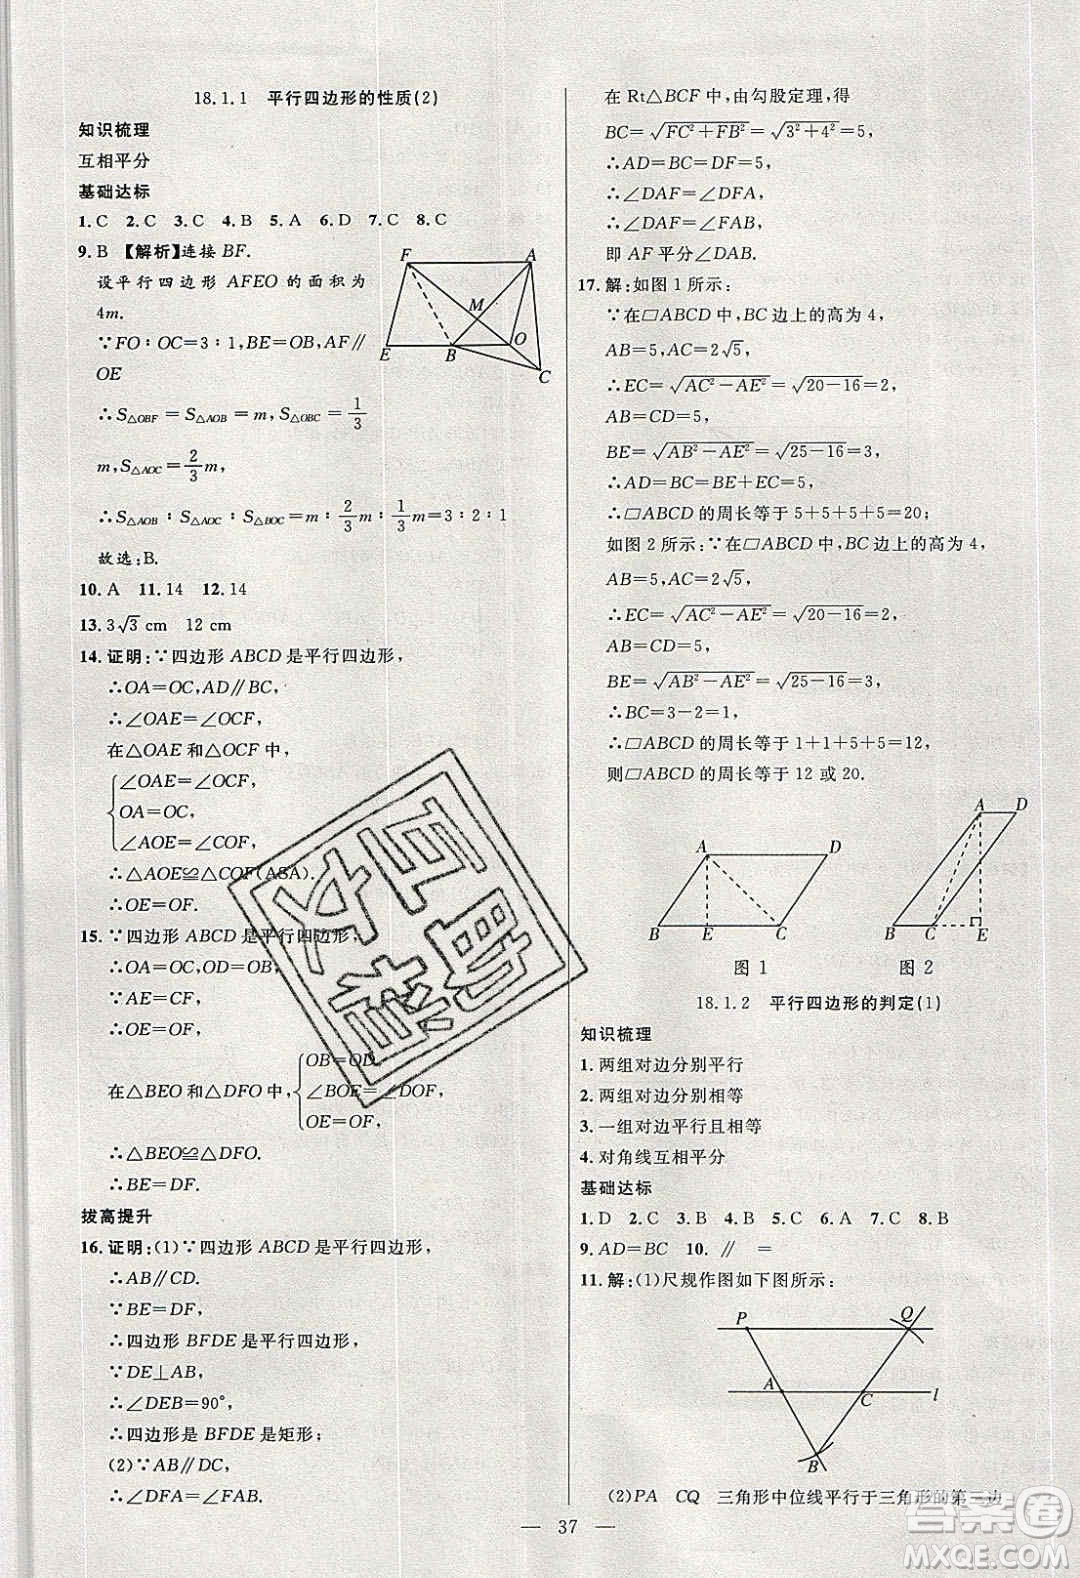 18.1.1 平行四边形的性质(2)
知识梳理
互相平分
基础达标
1. C 2. C 3. C 4. B 5. A 6. D 7. C 8. C
9. B 【解析】连接 BF.
设平行四边形 AFEO 的面积为
4m.
∵FO∶OC=3∶1,BE=OB,AF∥
OE
∴S△OBF=S△AOB=m,S△OBC=1/3
m,S△AOC=2/3m,
∴S△AOB∶S△AOC∶S△BOC=m∶2/3m∶1/3m=3∶2∶1
故选:B.
F A M E B O C
10. A 11. 14 12. 14
13. 3√3 cm 12 cm
14. 证明:∵四边形 ABCD 是平行四边形,
∴OA=OC,AD∥BC,
∴∠OAE=∠OCF,
在△OAE 和△OCF 中,
∠OAE=∠OCF,
OA=OC,
∠AOE=∠COF,
∴△AOE≌△COF(ASA).
∴OE=OF.
15. ∵四边形 ABCD 是平行四边形,
∴OA=OC,OD=OB,
∵AE=CF,
∴OE=OF,
在△BEO 和△DFO 中,
OB=OD,
∠BOE=∠DOF,
OE=OF,
∴△BEO≌△DFO.
∴BE=DF.
拔高提升
16. 证明:(1)∵四边形 ABCD 是平行四边形,
∴AB∥CD.
∵BE=DF,
∴四边形 BFDE 是平行四边形,
∵DE⊥AB,
∴∠DEB=90°,
∴四边形是 BFDE 是矩形;
(2)∵AB∥DC,
∴∠DFA=∠FAB.
在 Rt△BCF 中,由勾股定理,得
BC=√(FC²+FB²)=√(3²+4²)=5,
∴AD=BC=DF=5,
∴∠DAF=∠DFA,
∴∠DAF=∠FAB,
即 AF 平分∠DAB.
17. 解:如图 1 所示:
∵在□ABCD 中,BC 边上的高为 4,
AB=5,AC=2√5,
∴EC=√(AC²-AE²)=√(20-16)=2,
AB=CD=5,
BE=√(AB²-AE²)=√(25-16)=3,
∴AD=BC=BE+EC=5,
∴□ABCD 的周长等于 5+5+5+5=20;
如图 2 所示:∵在□ABCD 中,BC 边上的高为 4,
AB=5,AC=2√5,
∴EC=√(AC²-AE²)=√(20-16)=2,
AB=CD=5,
BE=√(AB²-AE²)=√(25-16)=3,
∴BC=3-2=1,
∴□ABCD 的周长等于 1+1+5+5=12,
则□ABCD 的周长等于 12 或 20.
A D B E C
A D B C E
图 1 图 2
18.1.2 平行四边形的判定(1)
知识梳理
1. 两组对边分别平行
2. 两组对边分别相等
3. 一组对边平行且相等
4. 对角线互相平分
基础达标
1. D 2. C 3. B 4. B 5. C 6. A 7. C 8. B
9. AD=BC 10. ∥ =
11. 解:(1)尺规作图如下图所示:
P Q
A C l
B
(2)PA CQ 三角形中位线平行于三角形的第三边
— 37 —
互助文档
答案圈
MXQE.COM